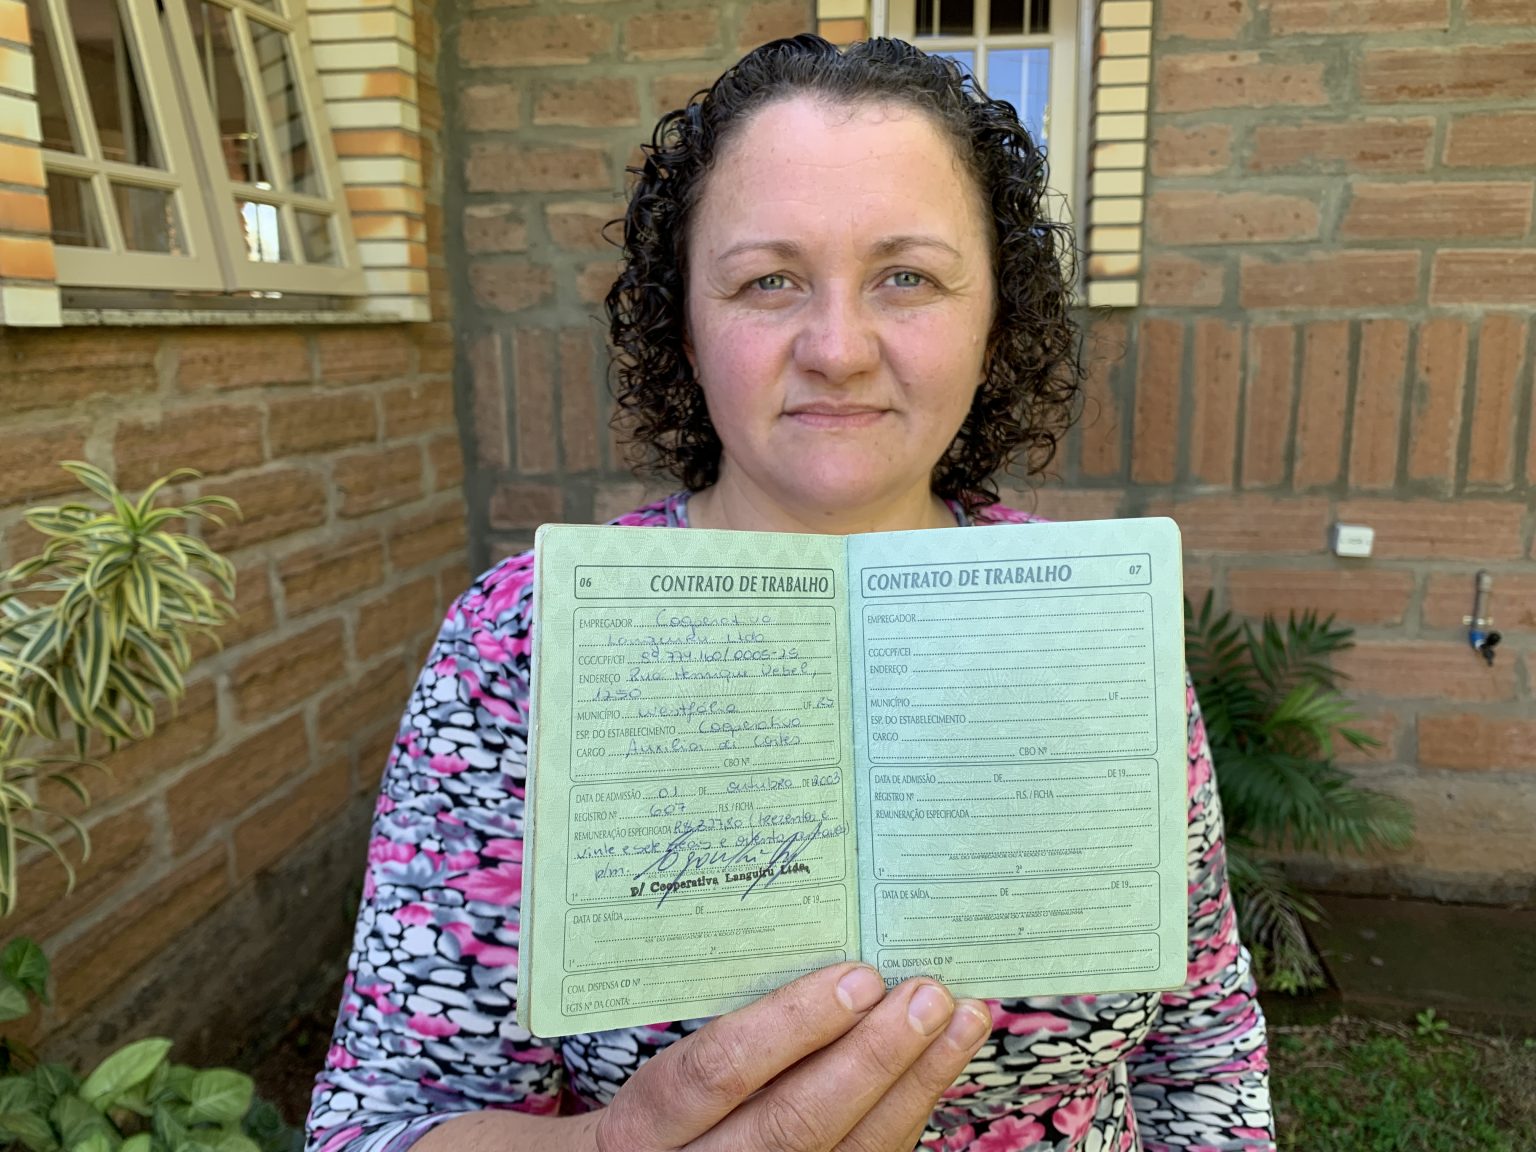 06 CONTRATO DE TRABALHO
EMPREGADOR Cooperativa
Languiru Ltda
CGC/CPF/CEI 89.774.160/0005-25
ENDEREÇO Rua Henrique Uebel,
1250
MUNICÍPIO Westfália UF RS
ESP. DO ESTABELECIMENTO Cooperativa
CARGO Auxiliar de Cortes
CBO Nº
DATA DE ADMISSÃO 01 DE outubro DE 2003
REGISTRO Nº 607 FLS. / FICHA
REMUNERAÇÃO ESPECIFICADA R$ 327,80 (trezentos e
vinte e sete reais e oitenta centavos)
p/m.
ASS. DO EMPREGADOR OU A ROGO C/ TESTEMUNHA
p/ Cooperativa Languiru Ltda.
1ª
DATA DE SAÍDA DE DE 19
ASS. DO EMPREGADOR OU A ROGO C/ TESTEMUNHA
1ª 2ª
COM. DISPENSA CD Nº
FGTS Nº DA CONTA:
CONTRATO DE TRABALHO 07
EMPREGADOR
CGC/CPF/CEI
ENDEREÇO
MUNICÍPIO UF
ESP. DO ESTABELECIMENTO
CARGO
CBO Nº
DATA DE ADMISSÃO DE DE 19
REGISTRO Nº FLS. / FICHA
REMUNERAÇÃO ESPECIFICADA
ASS. DO EMPREGADOR OU A ROGO C/ TESTEMUNHA
1ª 2ª
DATA DE SAÍDA DE DE 19
ASS. DO EMPREGADOR OU A ROGO C/ TESTEMUNHA
1ª 2ª
COM. DISPENSA CD Nº
FGTS CONTA: